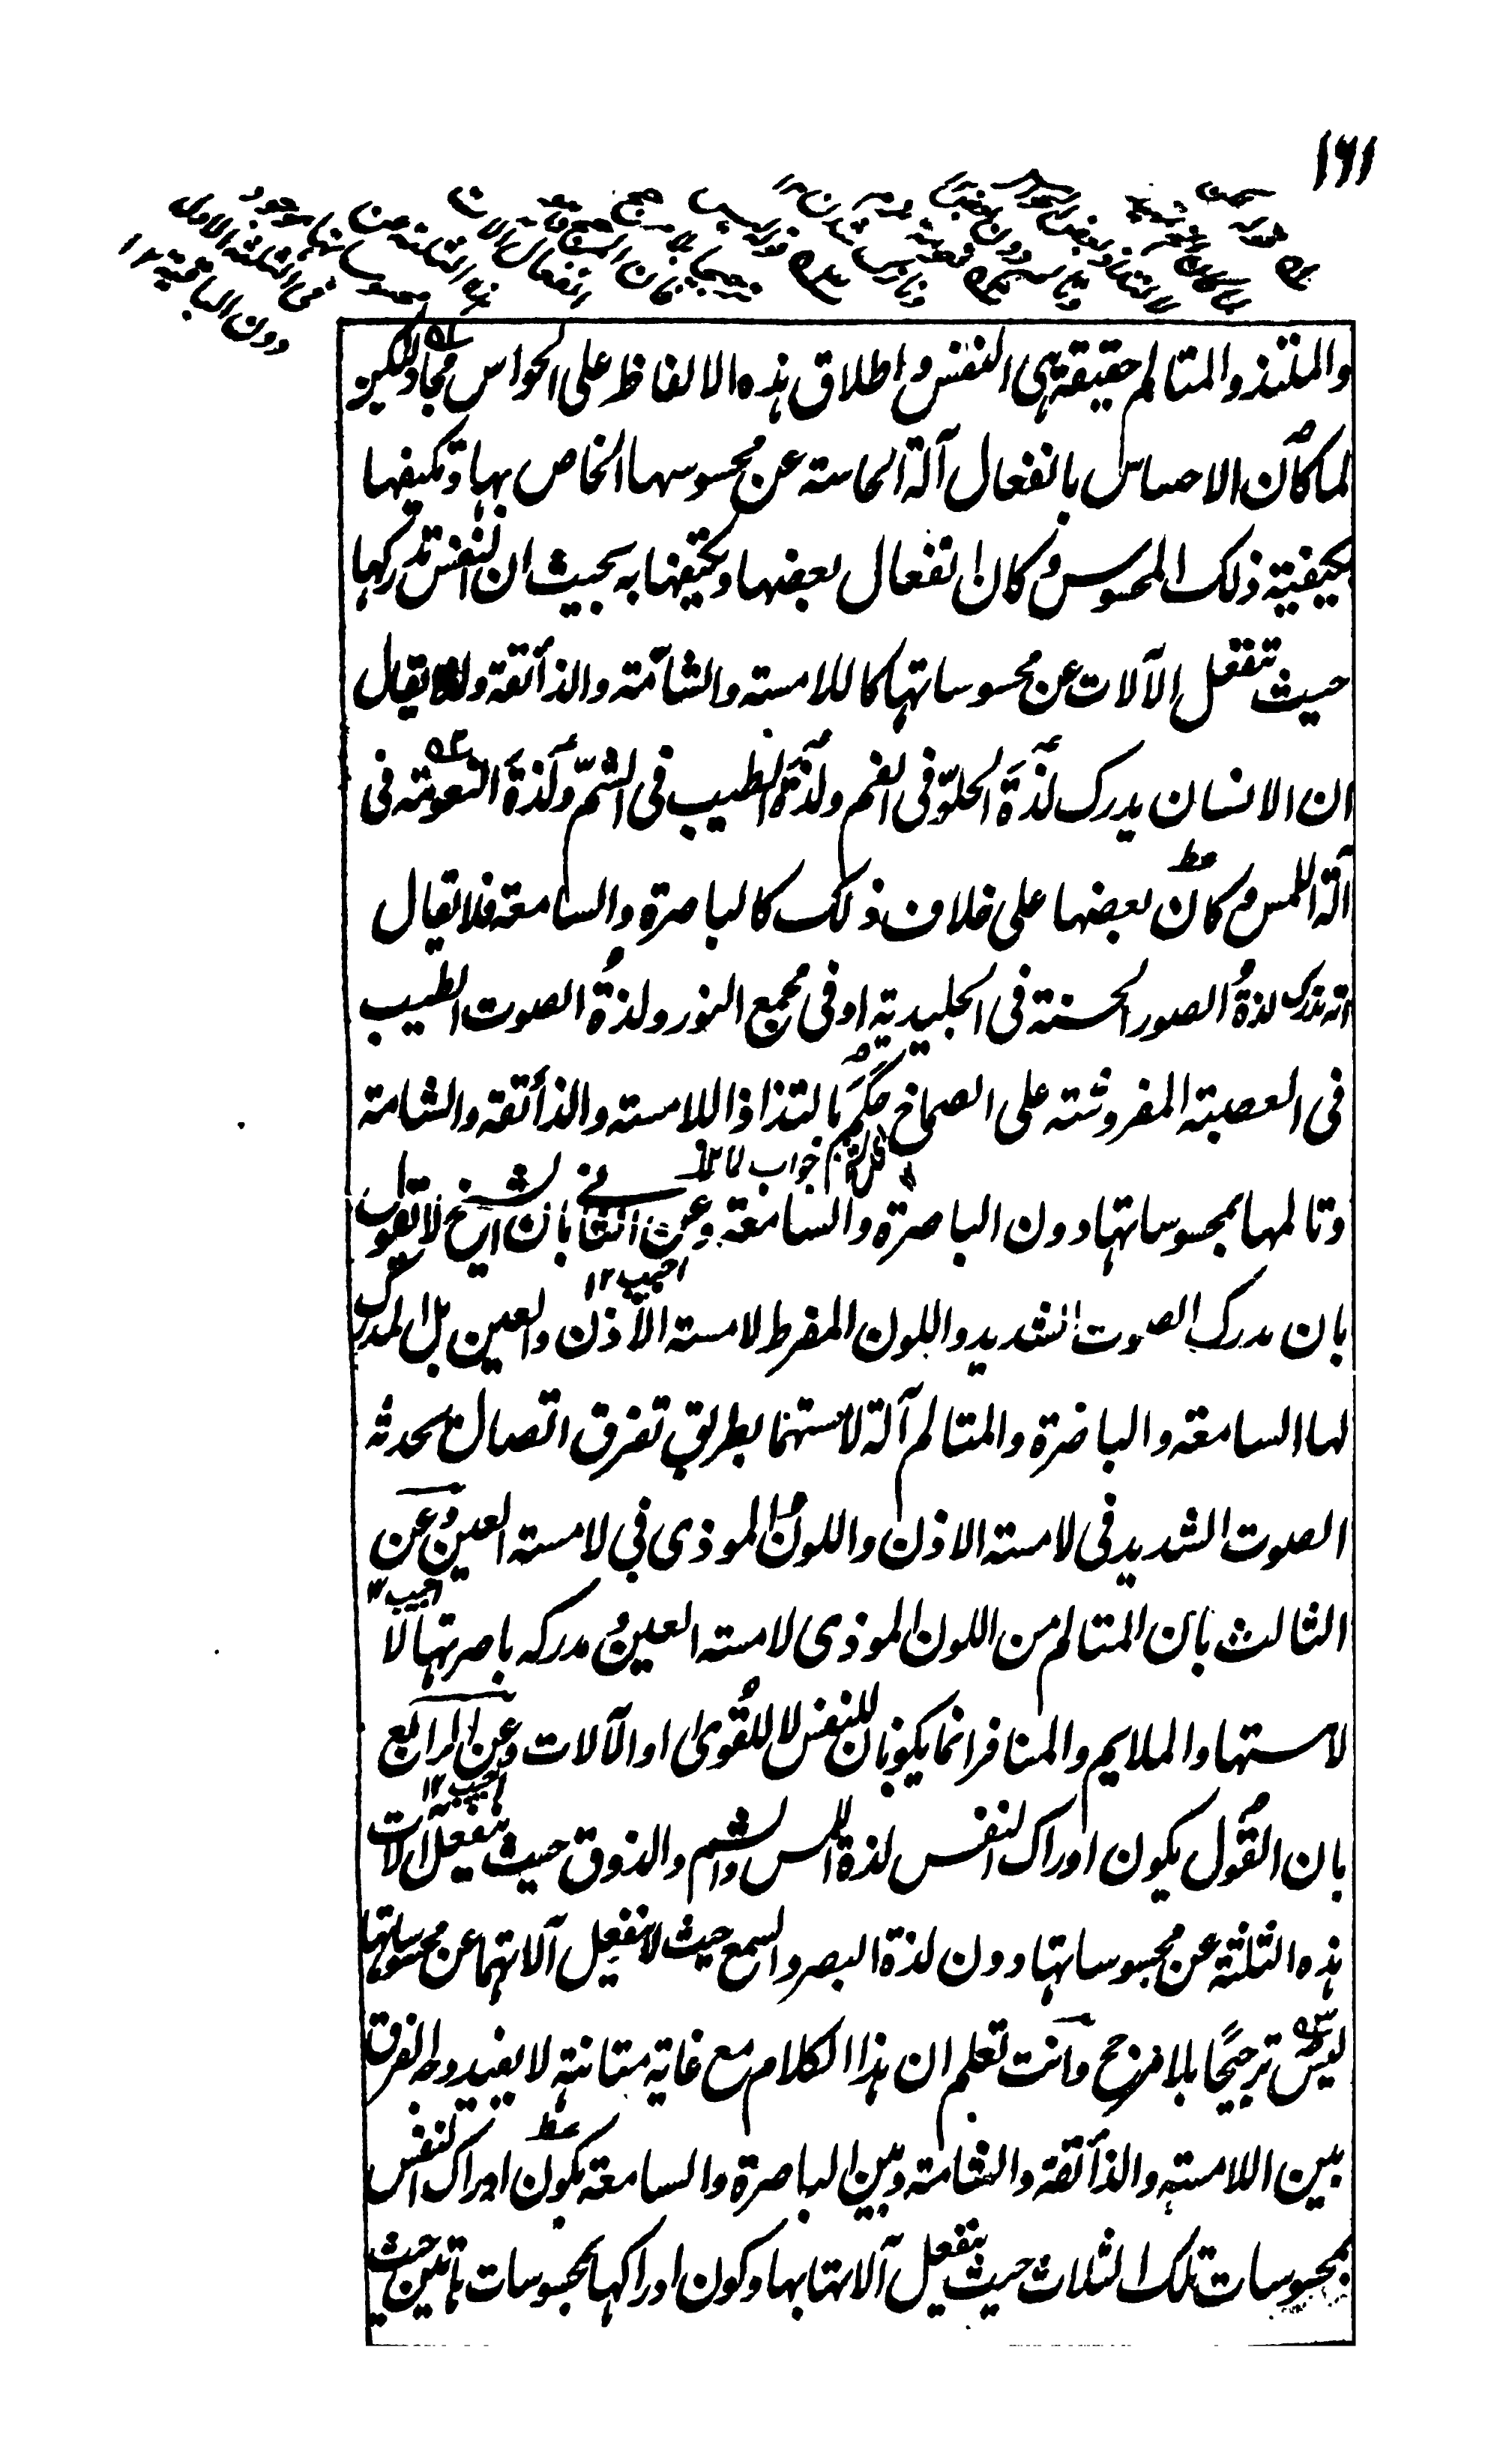 ١٦١
والملتذ والمتالم حقيقة هى النفس واطلاق هذه الالفاظ على الحواس مجاز ولكن
لما كان الاحساس بانفعال آلة الحاسة عن محسوسها الخاص بها وتكيفها
بكيفية ذلك المحسوس وكان انفعال بعضها وتكيفها به بحيث ان النفس تدركها
حيث تنفعل الآلات عن محسوساتها كاللامسة والشامّة والذائقة ولذا يقال
ان الانسان يدرك لذة الحلو فى الفم ولذة الطيب فى الشمّ ولذة النعومة فى
آلة اللمس وكان بعضها على خلاف ذلك كالباصرة والسامعة فلا يقال
انه تدرك لذة الصور الحسنة فى الجليدية او فى مجمع النور ولذة الصوت الطيب
فى العصبة المفروشة على الصماخ حكم بالتذاذ اللامسة والذائقة والشامة
جواب لما ١٢
وتالمها بمحسوساتها دون الباصرة والسامعة وعن الثانى بان الشيخ لا يقول
اجيب ١٢
بان مدرك الصوت الشديد واللون المفرط لامسة الاذن والعين بل المدرك
لها السامعة والباصرة والمتالم آلة لامستهما بطريق تفرق اتصال يحدثه
الصوت الشديد فى لامسة الاذن واللون الموذى فى لامسة العين وعن
اجيب ١٢
الثالث بان المتالم من اللون الموذى لامسة العين ومدركه باصرتها لا
لامستها والملايم والمنافر انما يكونان للنفس لا للقوى او الآلات وعن الرابع
اجيب ١٢
بان القول بكون ادراك النفس لذة اللمس والشم والذوق حيث ينفعل آلات
هذه الثلثة عن محسوساتها دون لذة البصر والسمع حيث لا ينفعل آلاتهما عن محسوساتها
ليس ترجيحًا بلا مرجح وانت تعلم ان هذا الكلام مع غاية متانته لا يفيد وجه الفرق
بين اللامسة والذائقة والشامة وبين الباصرة والسامعة بكون ادراك النفس
بمحسوسات تلك الثلاث حيث ينفعل آلاتها بها وكون ادراكها بمحسوسات هاتين حيث